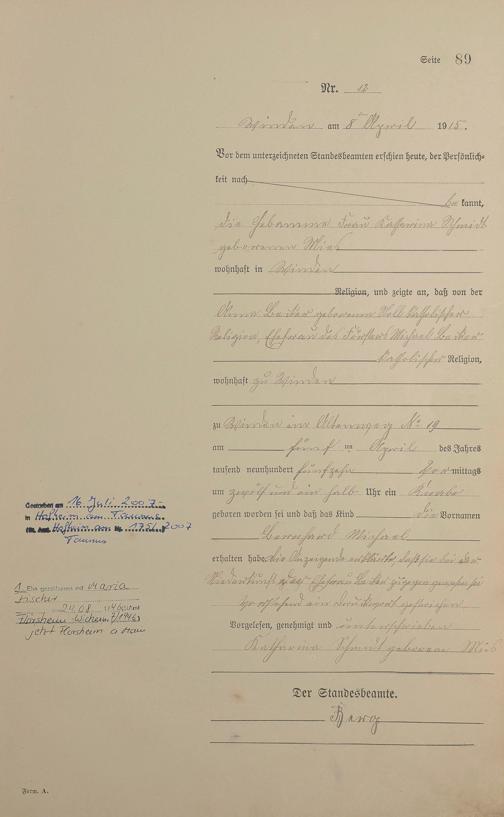 Seite 89
Nr. 12
Winden am 8 April 1915.
Vor dem unterzeichneten Standesbeamten erschien heute, der Persönlich-
keit nach
be kannt,
die Hebamme Frau Katharina Schmidt
geborenen Mies
wohnhaft in Winden
Religion, und zeigte an, daß von der
Anna geborenen katholischer
Religion, Ehefrau des Försters Michael
katholischer Religion,
wohnhaft zu Winden
zu Winden im No 19
am fünf ten April des Jahres
tausend neunhundert fünfzehn Vor mittags
um zwölf und ein halb Uhr ein Knabe
geboren worden sei und daß das Kind die Vornamen
Bernhard Michael
erhalten habe. Die Anzeigende erklärte, daß sie bei der
Niederkunft der Ehefrau zugegen gewesen sei
Vorstehend ein Druckwort gestrichen
Vorgelesen, genehmigt und unterschrieben
Katharina Schmidt geborene Mies
Der Standesbeamte.
Berg
Gestorben am 16. Juli 2007
in Hofheim am Taunus
Hofheim am 175/2007
Taunus
1. Ehe geschlossen mit Maria
Fischer
24.08.
Flörsheim 7/1946
jetzt Flörsheim a Main
Form. A.